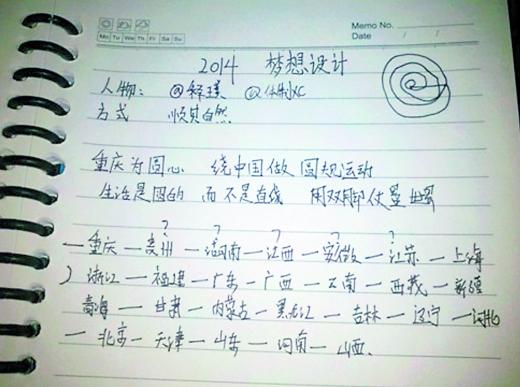 Memo No.
Mo Tu We Th Fr Sa Su
Date / /
2014 梦想设计
人物: @ @
方式 顺其自然
重庆为圆心 绕中国做 圆规运动
生活是圆的 而不是直线 用双脚丈量
? ? ? ? ?
一重庆—贵州—湖南—江西—安徽—江苏—上海
浙江—福建—广东—广西—云南—西藏—新疆
青海—甘肃—内蒙古—黑龙江—吉林—辽宁—河北
—北京—天津—山东—河南—山西.